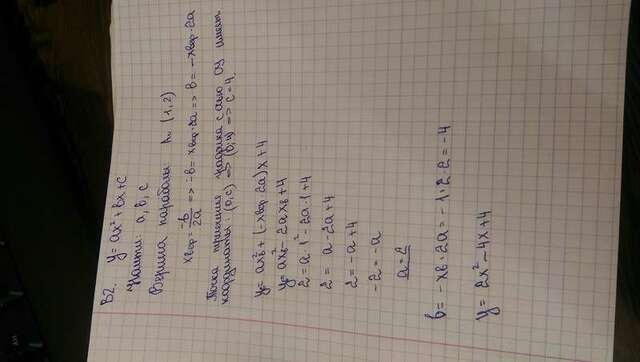 В2. y = ax² + bx + c
Найти: a, b, c
Вершина параболы: A (1, 2)
x вер = -b/2a => -b = x вер · 2a => b = -x вер · 2a
Точка графика с осью OY имеет
координаты: (0, c) => (0; 4) => c = 4.
y = ax² + (-x вер · 2a)x + 4
y = ax₈² - 2ax₈ + 4
2 = a · 1² - 2a · 1 + 4
2 = a - 2a + 4
2 = -a + 4
-2 = -a
a = 2
b = -x в · 2a = -1 · 2 · 2 = -4
y = 2x² - 4x + 4